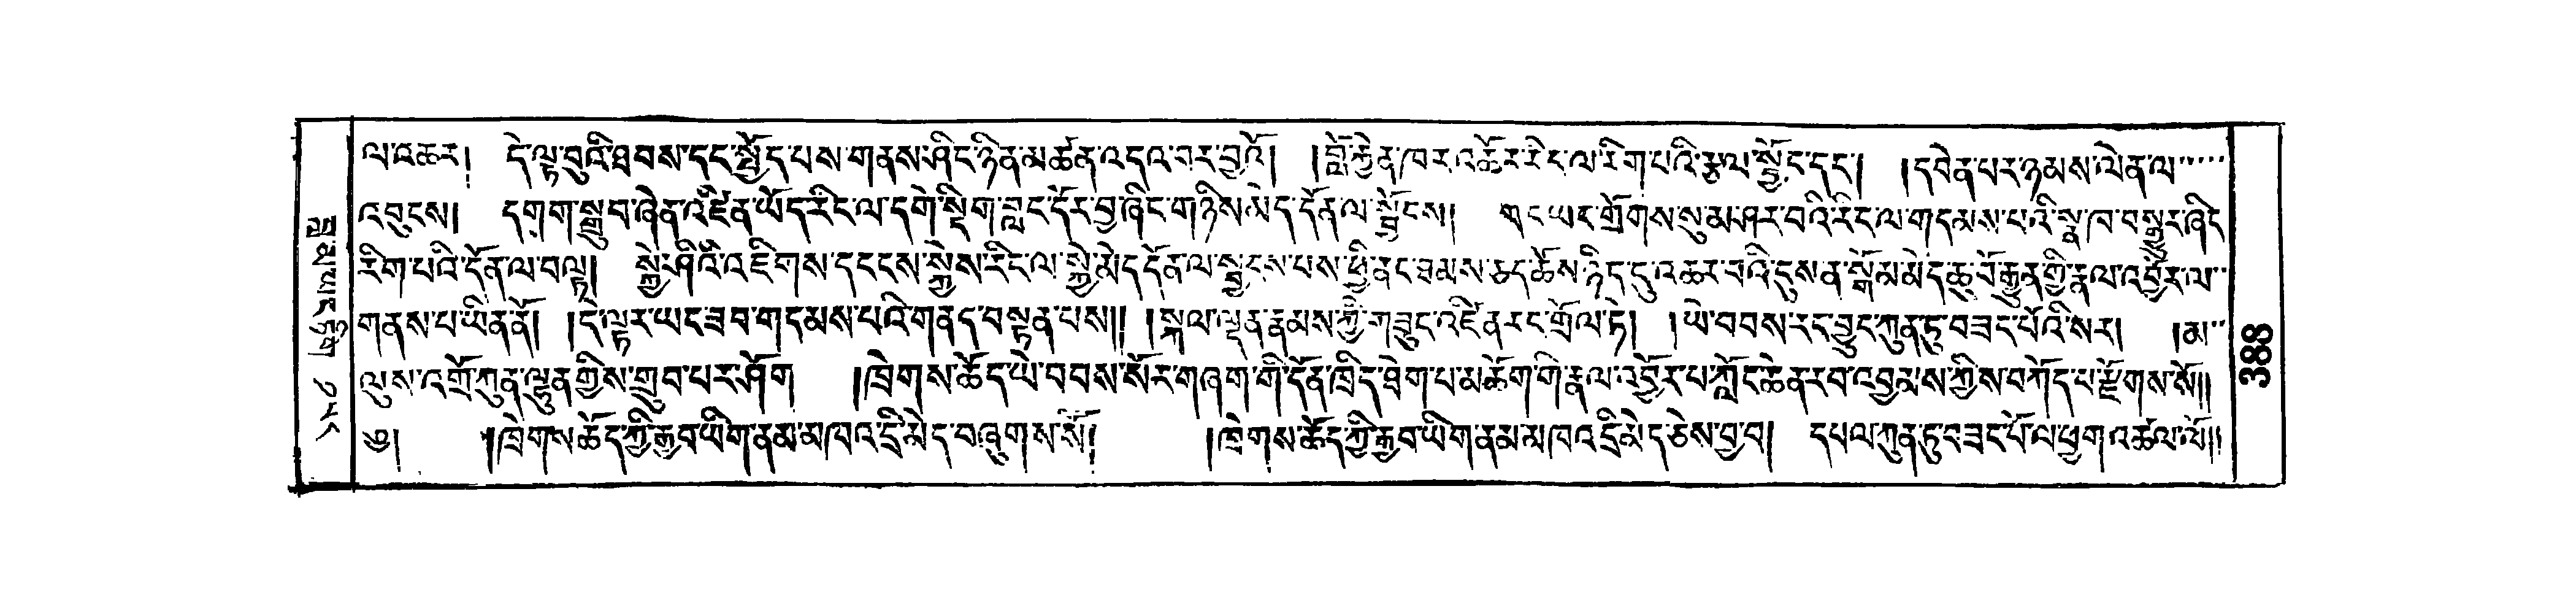 ལ་འཆར། དེ་ལྟ་བུའི་ཐབས་དང་སྤྱོད་པས་གནས་ཤིང་ཉིན་མཚན་འདའ་བར་བྱའོ། །བློ་རྐྱེན་ཁར་འཚོར་རིང་ལ་རིག་པའི་རྩལ་སྦྱོང་དང་། །དབེན་པར་ཉམས་ལེན་ལ་
འབུངས། དགག་སྒྲུབ་ཞེན་འཛིན་ཡོད་རིང་ལ་དགེ་སྡིག་བླང་དོར་བྱ་ཞིང་གཉིས་མེད་དོན་ལ་སྦྱོངས། གང་ཡར་གྲོགས་སུ་མ་ཤར་བའི་རིང་ལ་གདམས་པའི་སྣ་ཁ་བསྒྱུར་ཞིང་
རིག་པའི་དོན་ལ་བལྟ། སྐྱེ་ཤིའི་འཇིགས་དངངས་སྐྱེས་རིང་ལ་སྐྱེ་མེད་དོན་ལ་སྦྱངས་པས་ཕྱི་ནང་ཐམས་ཅད་ཆོས་ཉིད་དུ་འཆར་བའི་དུས་ན་སྒོམ་མེད་ཆུ་བོ་རྒྱུན་གྱི་རྣལ་འབྱོར་ལ་
གནས་པ་ཡིན་ནོ། །དེ་ལྟར་ཡང་ཟབ་གདམས་པའི་གནད་བསྟན་པས།། །སྐལ་ལྡན་རྣམས་ཀྱི་གཟུང་འཛིན་རང་གྲོལ་ཏེ། །ཡེ་བབས་རང་བྱུང་ཀུན་ཏུ་བཟང་པོའི་སར། །མ་
ལུས་འགྲོ་ཀུན་ལྷུན་གྱིས་གྲུབ་པར་ཤོག །ཁྲེགས་ཆོད་ཡེ་བབས་སོར་གཞག་གི་དོན་ཁྲིད་ཐེག་པ་མཆོག་གི་རྣལ་འབྱོར་པ་ཀློང་ཆེན་རབ་འབྱམས་ཀྱིས་བཀོད་པ་རྫོགས་སོ།།
༄། །ཁྲེགས་ཆོད་ཀྱི་རྒྱབ་ཡིག་ནམ་མཁའ་དྲི་མེད་བཞུགས་སོ། །ཁྲེགས་ཆོད་ཀྱི་རྒྱབ་ཡིག་ནམ་མཁའ་དྲི་མེད་ཅེས་བྱ་བ། དཔལ་ཀུན་ཏུ་བཟང་པོ་ལ་ཕྱག་འཚལ་ལོ།།